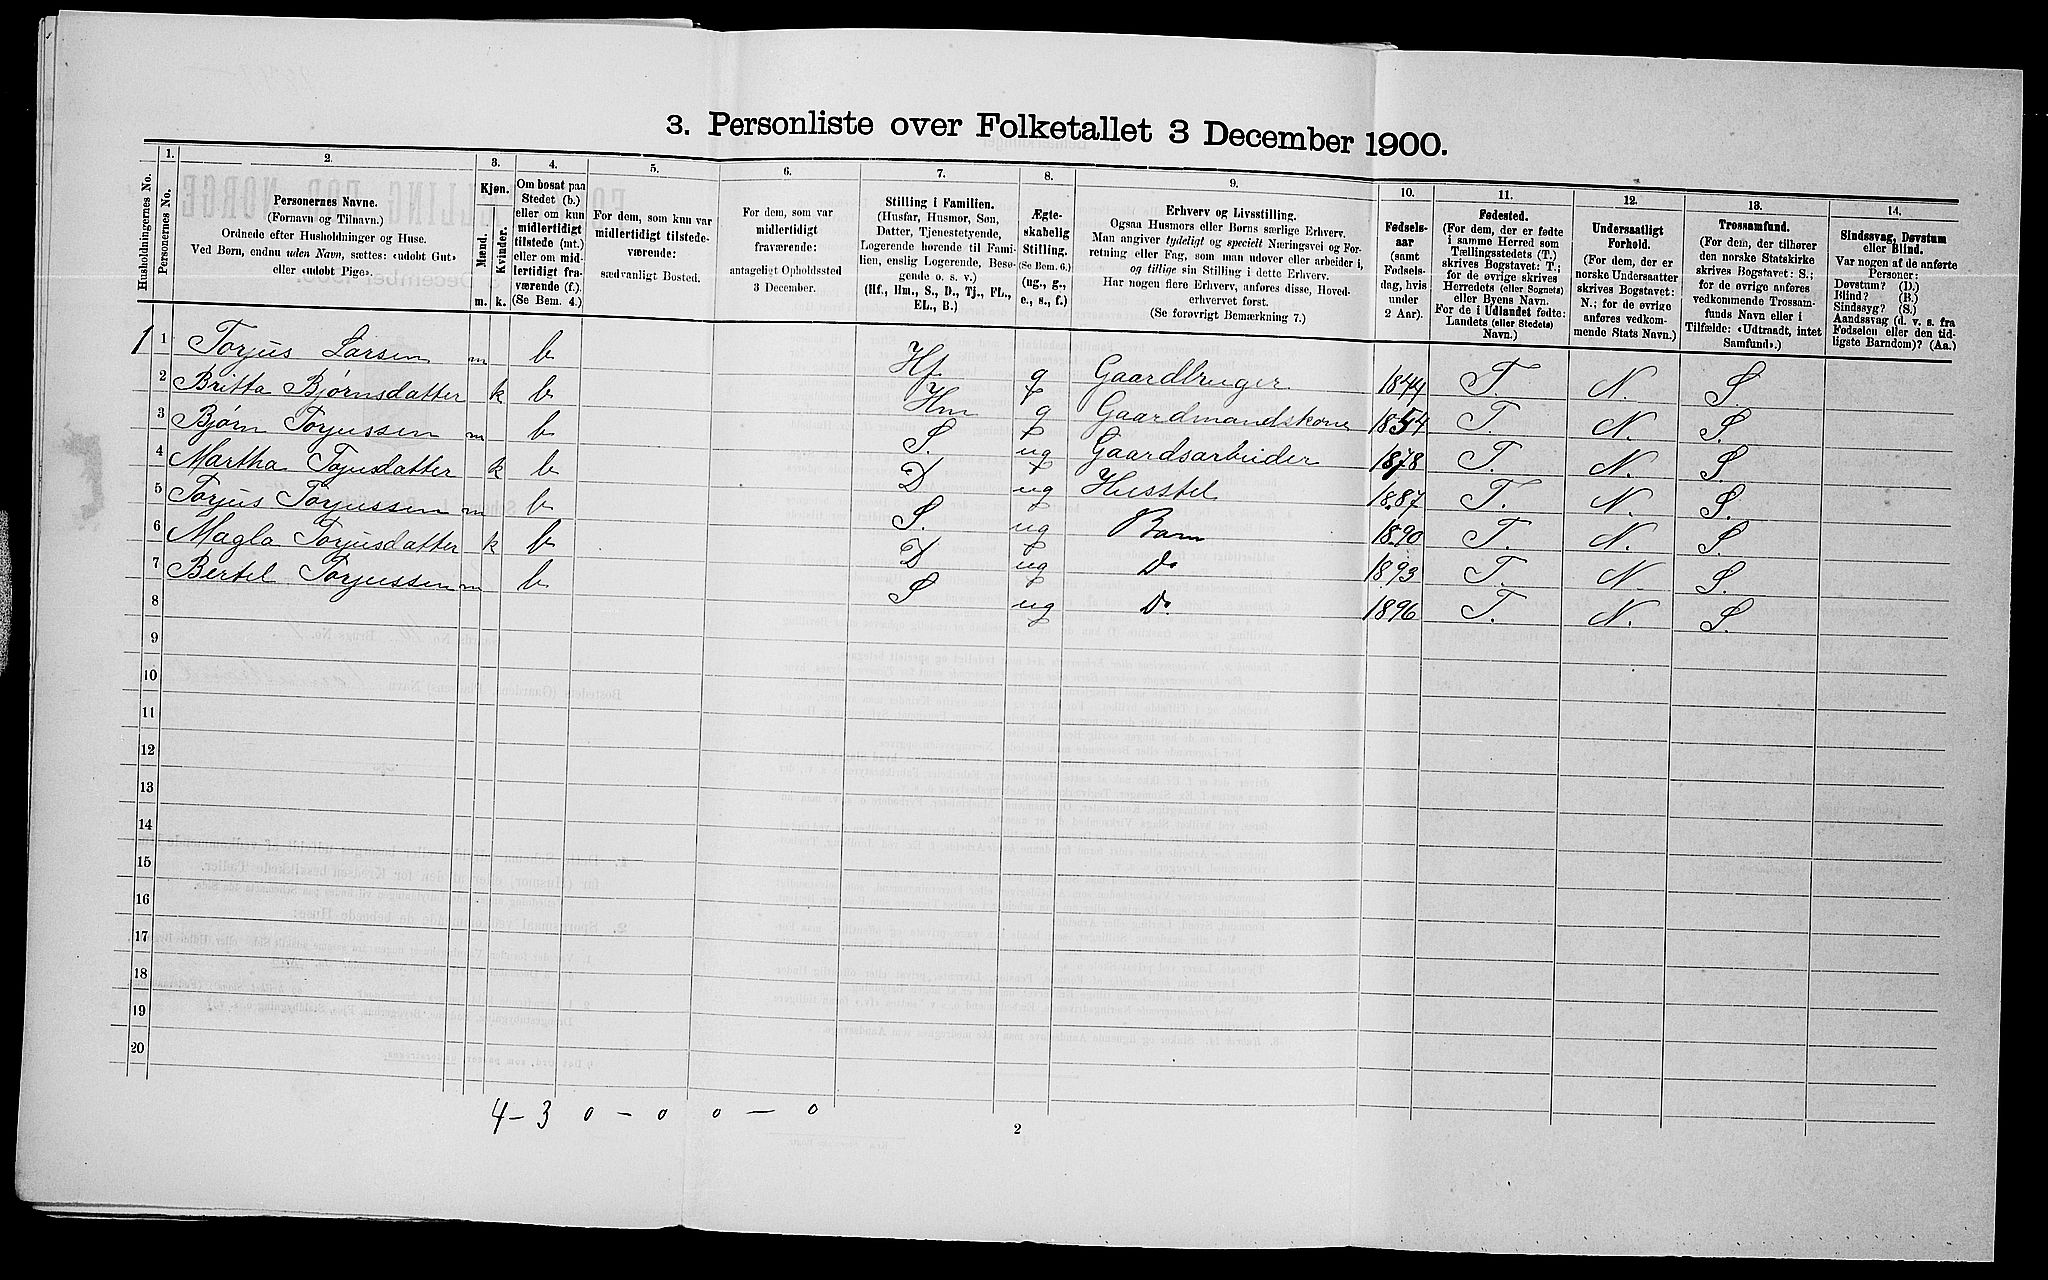 3. Personliste over Folketallet 3 December 1900.
1. 2. 3. 4. 5. 6. 7. 8. 9. 10. 11. 12. 13. 14.
Husholdningernes No.
Personernes No.
Personernes Navne.
(Fornavn og Tilnavn.)
Ordnede efter Husholdninger og Huse.
Ved Børn, endnu uden Navn, sættes: «udøbt Gut»
eller «udøbt Pige».
Kjøn.
Mænd.
Kvinder.
m. k.
Om bosat paa
Stedet (b.)
eller om kun
midlertidigt
tilstede (mt.)
eller om mid-
lertidigt fra-
værende (f.).
(Se Bem. 4.)
For dem, som kun var
midlertidigt tilstede-
værende:
sædvanligt Bosted.
For dem, som var
midlertidigt
fraværende:
antageligt Opholdssted
3 December.
Stilling i Familien.
(Husfar, Husmor, Søn,
Datter, Tjenestetyende,
Logerende hørende til Fami-
lien, enslig Logerende, Besø-
gende o. s. v.)
(Hf., Hm., S., D., Tj., FL.,
EL., B.)
Ægte-
skabelig
Stilling.
(Se Bem. 6.)
(ug., g.,
e., s., f.)
Erhverv og Livsstilling.
Ogsaa Husmors eller Børns særlige Erhverv.
Man angiver tydeligt og specielt Næringsvei og For-
retning eller Fag, som man udøver eller arbeider i,
og tillige sin Stilling i dette Erhverv.
Har nogen flere Erhverv, anføres disse, Hoved-
erhvervet først.
(Se forøvrigt Bemærkning 7.)
Fødsels-
aar
(samt
Fødsels-
dag, hvis
under
2 Aar).
Fødested.
(For dem, der er fødte
i samme Herred som
Tællingsstedets (T.)
skrives Bogstavet: T.;
for de øvrige skrives
Herredets (eller Sognets)
eller Byens Navn.
For de i Udlandet fødte:
Landets (eller Stedets)
Navn.)
Undersaatligt
Forhold.
(For dem, der er
norske Undersaatter
skrives Bogstavet:
N.; for de øvrige
anføres vedkom-
mende Stats Navn.)
Trossamfund.
(For dem, der tilhører
den norske Statskirke
skrives Bogstavet: S.;
for de øvrige anføres
vedkommende Trossam-
funds Navn eller i
Tilfælde: «Udtraadt, intet
Samfund».)
Sindssvag, Døvstum
eller Blind.
Var nogen af de anførte
Personer:
Døvstum? (D.)
Blind? (B.)
Sindssyg? (S.)
Aandssvag (d. v. s. fra
Fødselen eller den tid-
ligste Barndom)? (Aa.)
1 1 Torjus Larsen m b Hf g Gaardbruger 1844 T. N. S.
2 Britta Bjørnsdatter k b Hm g Gaardmandskone 1854 T. N. S.
3 Bjørn Torjussen m b S. ug Gaardsarbeider 1878 T. N. S.
4 Martha Tojusdatter k b D ug Husstel 1887 T. N. S.
5 Torjus Torjussen m b S. ug Barn 1890 T. N. S.
6 Magla Torjusdatter k b D ug Do 1893 T. N. S.
7 Bertel Torjussen m b S ug Do. 1896 T. N. S.
8
9
10
11
12
13
14
15
16
17
18
19
20
4 - 3 0 - 0 0 - 0
2